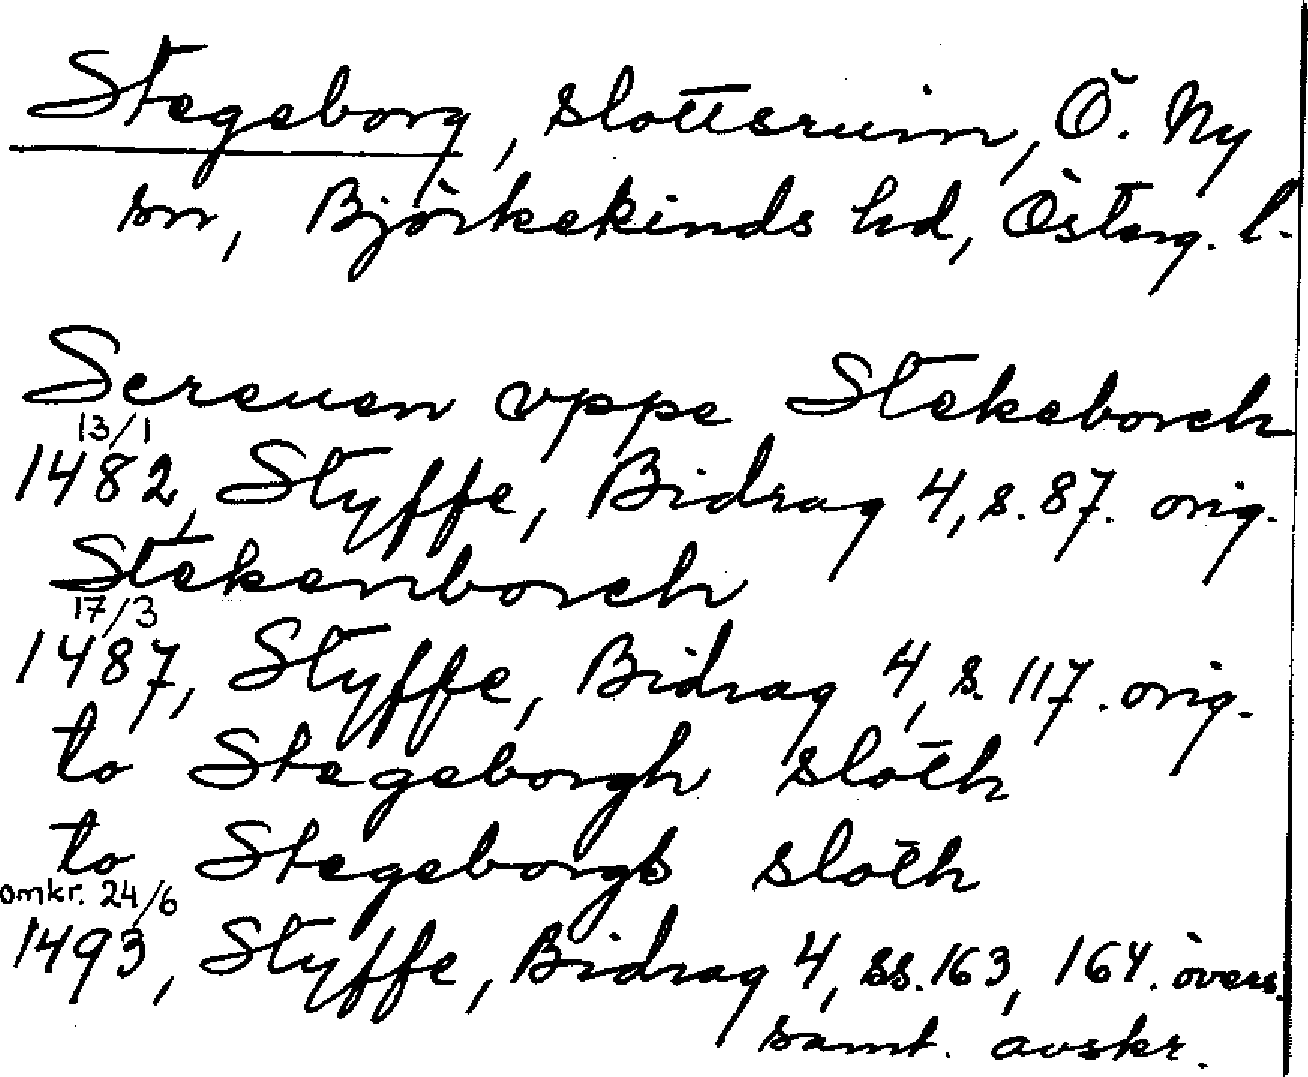 Stegeborg, slottsruin, Ö. Ny
sn, Björkekinds hd, Österg. l.
Screuen vppe Stekeborch
13/1
1482, Styffe, Bidrag 4, s. 87. orig.
Stekenborch
17/3
1487, Styffe, Bidrag 4, s. 117. orig.
to Stegeborgh sloth
to Stegeborgs sloth
omkr. 24/6
1493, Styffe, Bidrag 4, ss. 163, 164. övers.
samt. avskr.